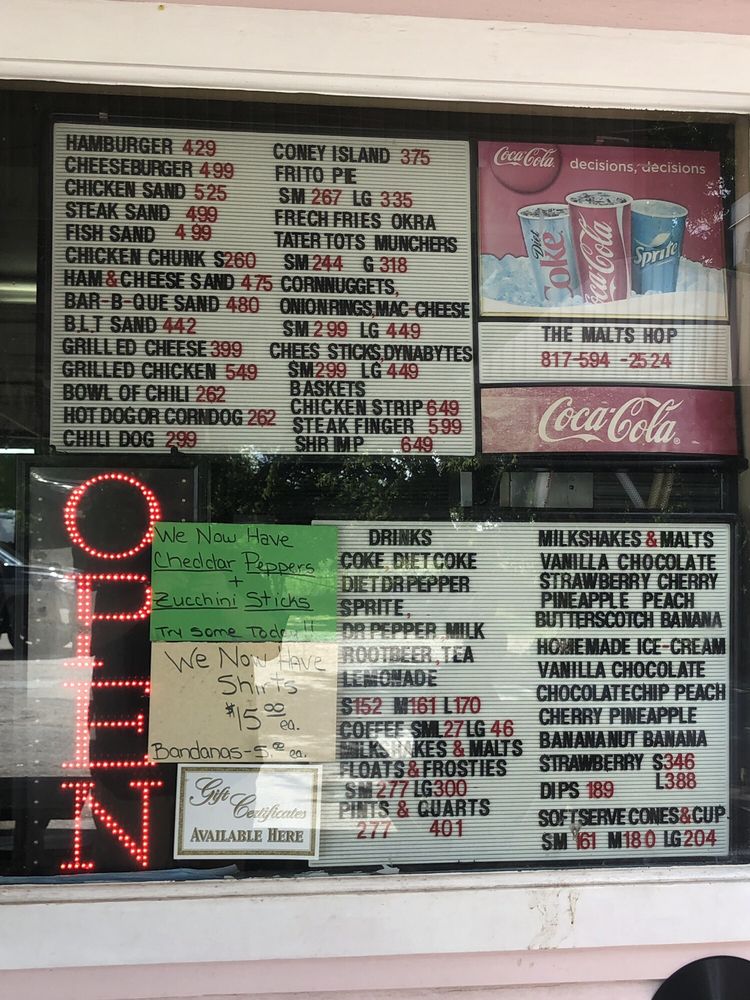 HAMBURGER 429
CHEESEBURGER 499
CHICKEN SAND 525
STEAK SAND 499
FISH SAND 499
CHICKEN CHUNK S260
HAM & CHEESE SAND 475
BAR-B-QUE SAND 480
B.L.T SAND 442
GRILLED CHEESE 399
GRILLED CHICKEN 549
BOWL OF CHILI 262
HOT DOG OR CORNDOG 262
CHILI DOG 299
CONEY ISLAND 375
FRITO PIE
SM 267 LG 335
FRECH FRIES OKRA
TATER TOTS MUNCHERS
SM 244 G 318
CORNNUGGETS,
ONIONRINGS,MAC-CHEESE
SM 299 LG 449
CHEES STICKS,DYNABYTES
SM299 LG 449
BASKETS
CHICKEN STRIP 649
STEAK FINGER 599
SHRIMP 649
Coca-Cola decisions, decisions
Diet Coke
Coca-Cola
Sprite
THE MALTS HOP
817-594-2524
Coca-Cola
OPEN
We Now Have
Cheddar Peppers
+
Zucchini Sticks
Try some Today!!
We Now Have
Shirts
$15.00 ea.
Bandanas-5.00 ea.
Gift Certificates
AVAILABLE HERE
DRINKS
COKE, DIET COKE
DIET DR PEPPER
SPRITE,
DR PEPPER, MILK
ROOTBEER, TEA
LEMONADE
S152 M161 L170
COFFEE SML 27 LG 46
MILKSHAKES & MALTS
FLOATS & FROSTIES
SM 277 LG300
PINTS & QUARTS
277 401
MILKSHAKES & MALTS
VANILLA CHOCOLATE
STRAWBERRY CHERRY
PINEAPPLE PEACH
BUTTERSCOTCH BANANA
HOMEMADE ICE-CREAM
VANILLA CHOCOLATE
CHOCOLATECHIP PEACH
CHERRY PINEAPPLE
BANANANUT BANANA
STRAWBERRY S346
L388
DIPS 189
SOFTSERVE CONES & CUP
SM 161 M 180 LG 204